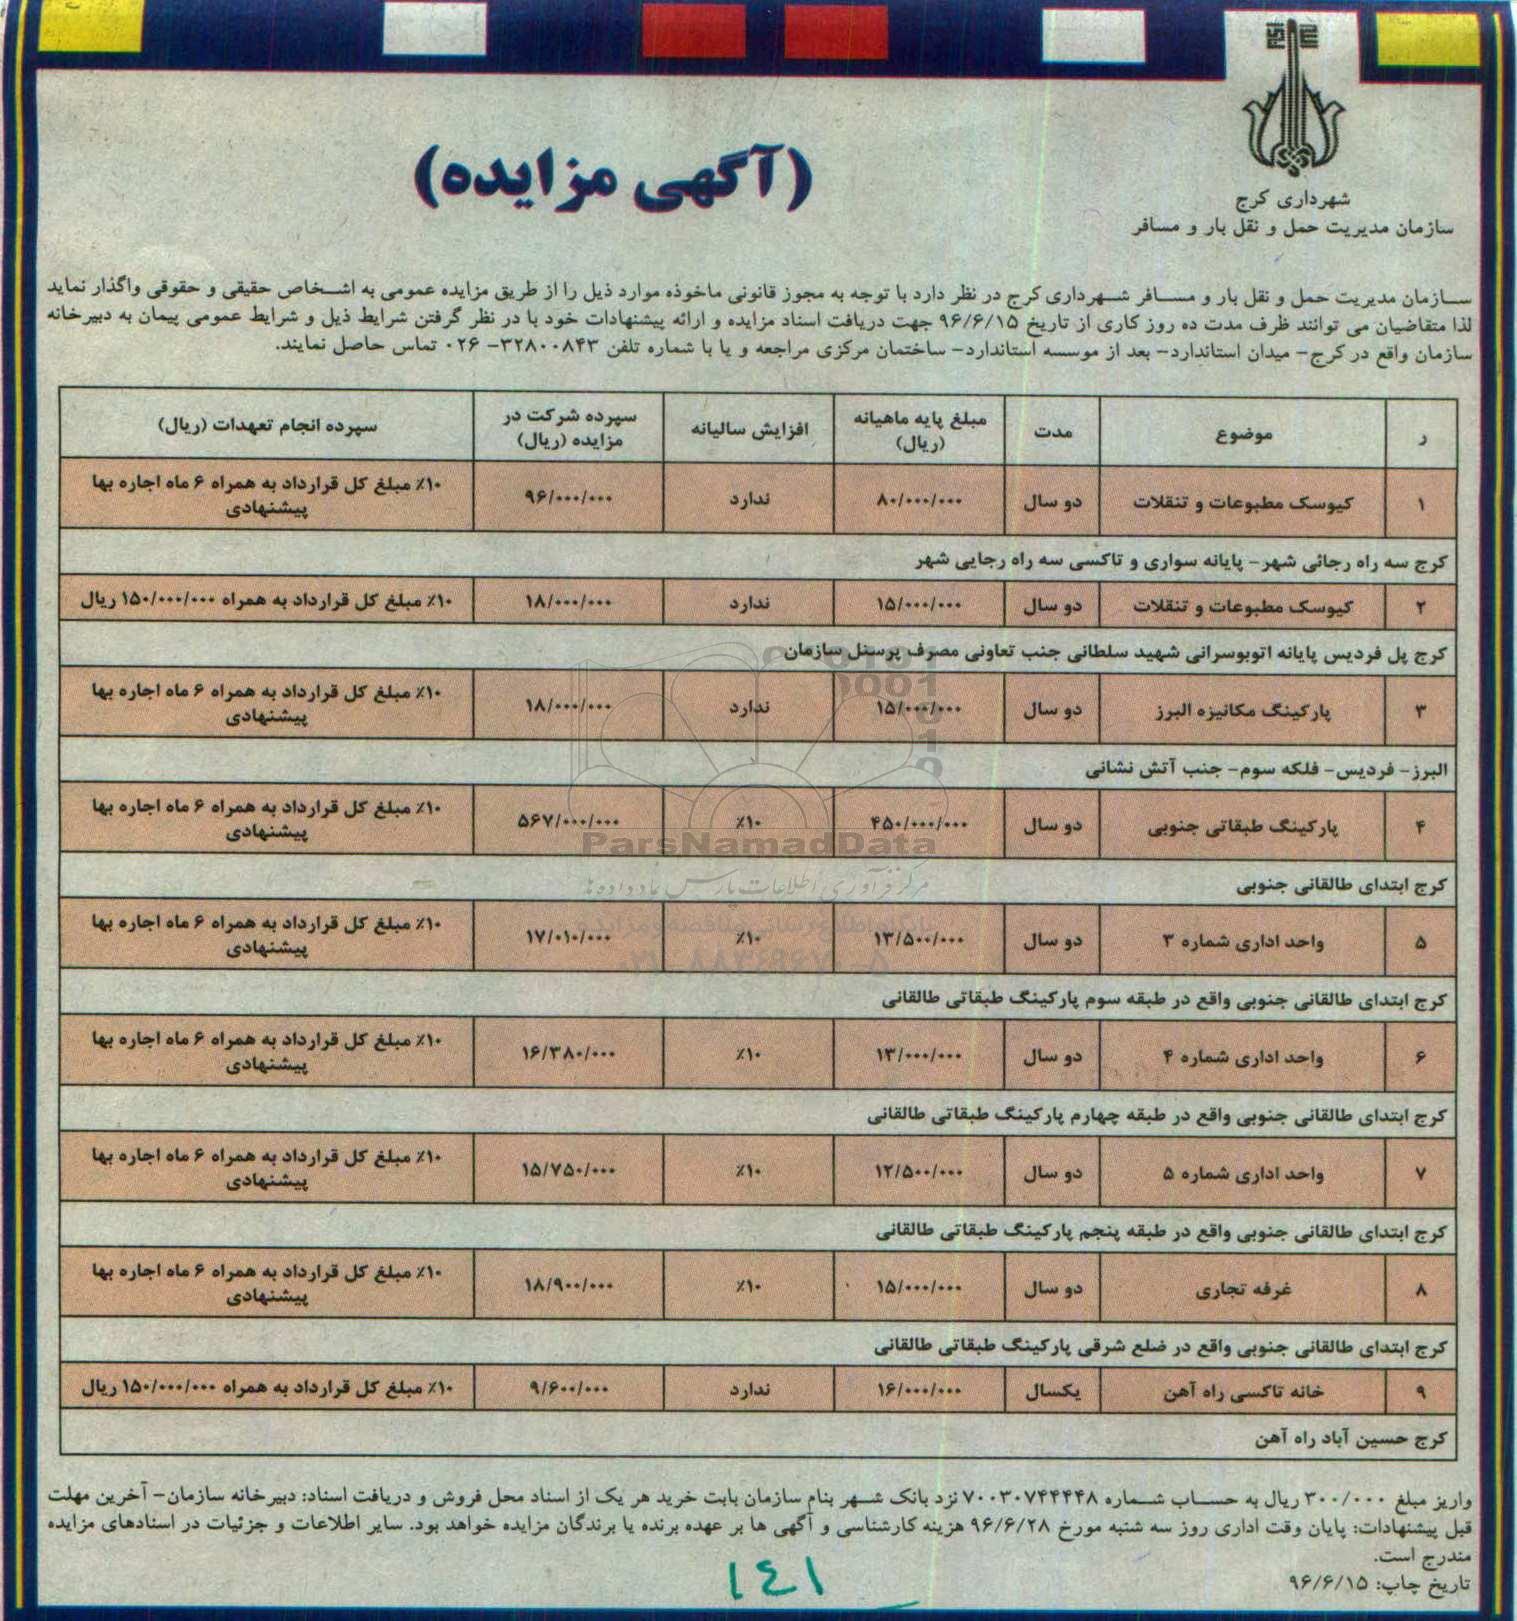 شهرداری کرج
سازمان مدیریت حمل و نقل بار و مسافر
(آگهی مزایده)
سازمان مدیریت حمل و نقل بار و مسافر شهرداری کرج در نظر دارد با توجه به مجوز قانونی ماخوذه موارد ذیل را از طریق مزایده عمومی به اشخاص حقیقی و حقوقی واگذار نماید
لذا متقاضیان می توانند ظرف مدت ده روز کاری از تاریخ ۹۶/۶/۱۵ جهت دریافت اسناد مزایده و ارائه پیشنهادات خود با در نظر گرفتن شرایط ذیل و شرایط عمومی پیمان به دبیرخانه
سازمان واقع در کرج- میدان استاندارد- بعد از موسسه استاندارد- ساختمان مرکزی مراجعه و یا با شماره تلفن ۳۲۸۰۰۸۴۳- ۰۲۶ تماس حاصل نمایند.
ر موضوع مدت مبلغ پایه ماهیانه (ریال) افزایش سالیانه سپرده شرکت در مزایده (ریال) سپرده انجام تعهدات (ریال)
۱ کیوسک مطبوعات و تنقلات دو سال ۸۰/۰۰۰/۰۰۰ ندارد ۹۶/۰۰۰/۰۰۰ ۱۰٪ مبلغ کل قرارداد به همراه ۶ ماه اجاره بها پیشنهادی
کرج سه راه رجائی شهر- پایانه سواری و تاکسی سه راه رجایی شهر
۲ کیوسک مطبوعات و تنقلات دو سال ۱۵/۰۰۰/۰۰۰ ندارد ۱۸/۰۰۰/۰۰۰ ۱۰٪ مبلغ کل قرارداد به همراه ۱۵۰/۰۰۰/۰۰۰ ریال
کرج پل فردیس پایانه اتوبوسرانی شهید سلطانی جنب تعاونی مصرف پرسنل سازمان
۳ پارکینگ مکانیزه البرز دو سال ۱۵/۰۰۰/۰۰۰ ندارد ۱۸/۰۰۰/۰۰۰ ۱۰٪ مبلغ کل قرارداد به همراه ۶ ماه اجاره بها پیشنهادی
البرز- فردیس- فلکه سوم- جنب آتش نشانی
۴ پارکینگ طبقاتی جنوبی دو سال ۴۵۰/۰۰۰/۰۰۰ ۱۰٪ ۵۶۷/۰۰۰/۰۰۰ ۱۰٪ مبلغ کل قرارداد به همراه ۶ ماه اجاره بها پیشنهادی
ParsNamadData
کرج ابتدای طالقانی جنوبی
مرکز فرآوری اطلاعات پارس نماد داده ها
۵ واحد اداری شماره ۳ دو سال ۱۳/۵۰۰/۰۰۰ ۱۰٪ ۱۷/۰۱۰/۰۰۰ ۱۰٪ مبلغ کل قرارداد به همراه ۶ ماه اجاره بها پیشنهادی
کرج ابتدای طالقانی جنوبی واقع در طبقه سوم پارکینگ طبقاتی طالقانی
۶ واحد اداری شماره ۴ دو سال ۱۳/۰۰۰/۰۰۰ ۱۰٪ ۱۶/۳۸۰/۰۰۰ ۱۰٪ مبلغ کل قرارداد به همراه ۶ ماه اجاره بها پیشنهادی
کرج ابتدای طالقانی جنوبی واقع در طبقه چهارم پارکینگ طبقاتی طالقانی
۷ واحد اداری شماره ۵ دو سال ۱۲/۵۰۰/۰۰۰ ۱۰٪ ۱۵/۷۵۰/۰۰۰ ۱۰٪ مبلغ کل قرارداد به همراه ۶ ماه اجاره بها پیشنهادی
کرج ابتدای طالقانی جنوبی واقع در طبقه پنجم پارکینگ طبقاتی طالقانی
۸ غرفه تجاری دو سال ۱۵/۰۰۰/۰۰۰ ۱۰٪ ۱۸/۹۰۰/۰۰۰ ۱۰٪ مبلغ کل قرارداد به همراه ۶ ماه اجاره بها پیشنهادی
کرج ابتدای طالقانی جنوبی واقع در ضلع شرقی پارکینگ طبقاتی طالقانی
۹ خانه تاکسی راه آهن یکسال ۱۶/۰۰۰/۰۰۰ ندارد ۹/۶۰۰/۰۰۰ ۱۰٪ مبلغ کل قرارداد به همراه ۱۵۰/۰۰۰/۰۰۰ ریال
کرج حسین آباد راه آهن
واریز مبلغ ۳۰۰/۰۰۰ ریال به حساب شماره ۷۰۰۳۰۷۴۴۴۴۸ نزد بانک شهر بنام سازمان بابت خرید هر یک از اسناد محل فروش و دریافت اسناد: دبیرخانه سازمان- آخرین مهلت
قبل پیشنهادات: پایان وقت اداری روز سه شنبه مورخ ۹۶/۶/۲۸ هزینه کارشناسی و آگهی ها بر عهده برنده یا برندگان مزایده خواهد بود. سایر اطلاعات و جزئیات در اسنادهای مزایده
مندرج است.
تاریخ چاپ: ۹۶/۶/۱۵
۱٤۱